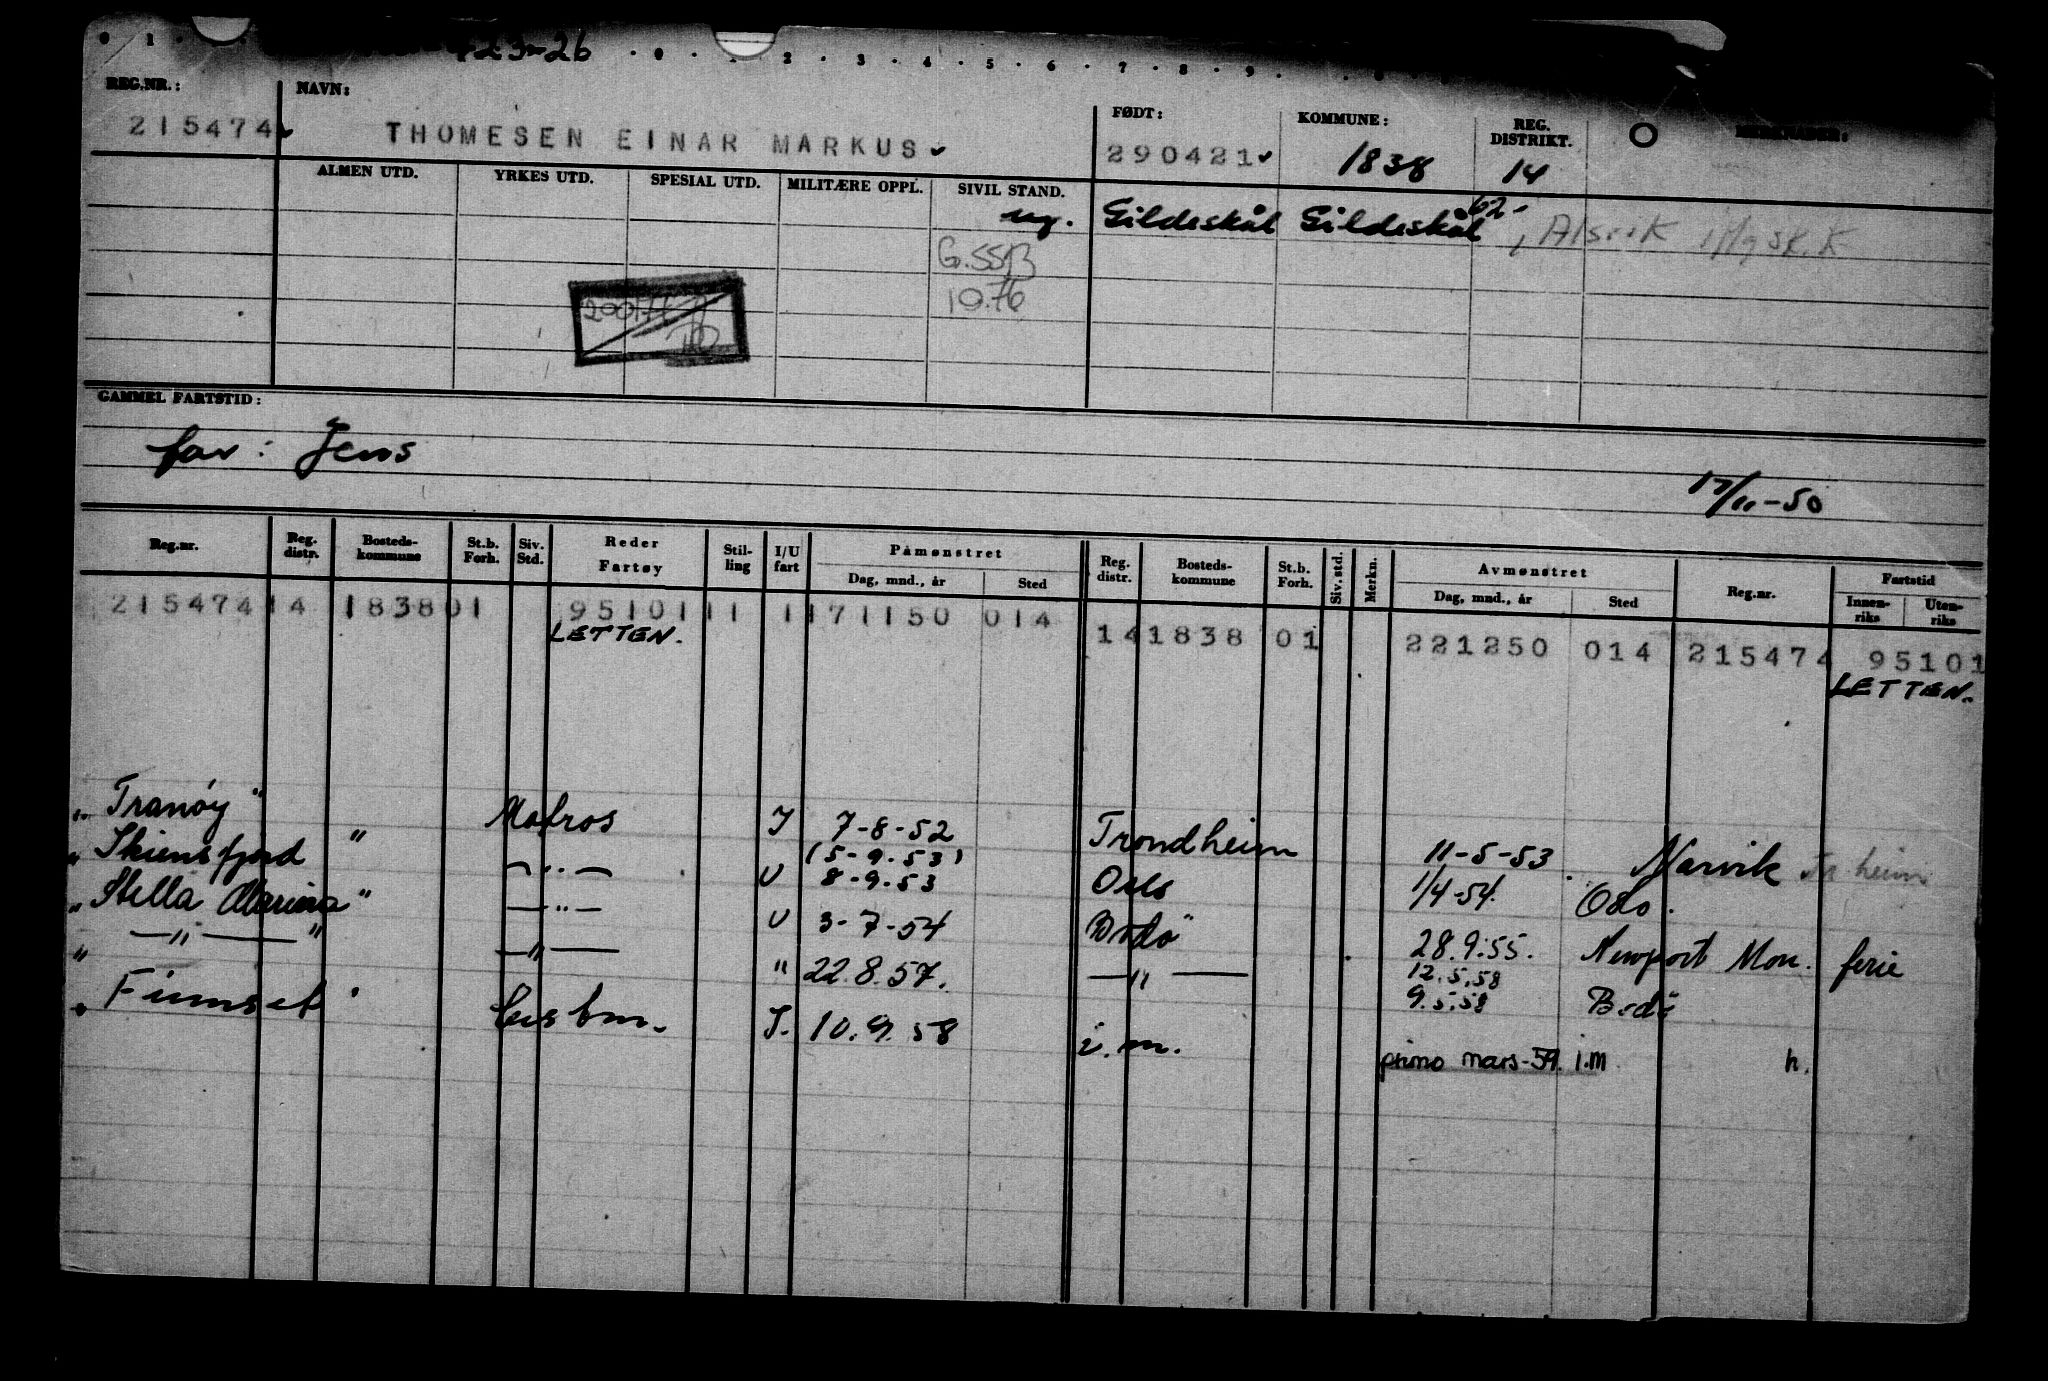 23-26
0 1 · · 0 · 1 · 2 · 3 · 4 · 5 · 6 · 7 · 8 · 9 ·
REG.NR.: NAVN: FØDT: KOMMUNE: REG. DISTRIKT.
215474 THOMESEN EINAR MARKUS 290421 1838 14
ALMEN UTD. YRKES UTD. SPESIAL UTD. MILITÆRE OPPL. SIVIL STAND.
ug. Gildeskål Gildeskål 62-, Alsvik
G.SSB
10.76
GAMMEL FARTSTID:
far: Jens
17/11-50
Reg.nr. Reg. distr. Bosteds-kommune St.b. Forh. Siv. Std. Reder Fartøy Stil-ling I/U fart Påmønstret Dag, mnd., år Sted Reg. distr. Bosteds-kommune St.b. Forh. Siv. std. Merkn. Avmønstret Dag, mnd., år Sted Reg.nr. Fartstid Innen-riks Uten-riks
215474 14 1838 01 95101 11 1 171150 014
LETTEN.
14 1838 01 221250 014 215474 95101
LETTEN.
"Tranøy" Matros I 7-8-52 Trondheim 11-5-53. Narvik Tr heim
(5-9.53)
"Skiensfjord" —"— U 8-9.53 Oslo 1/4-54. Oslo.
"Stella Marina" —"— U 3-7-54 Bodö 28.9.55. Newport Mon. ferie
"—"—" —"— " 22.8.57. —"— 12.5.58
9.5.58 Bodö
"Finnset" I. 10.9.58 i.m. primo mars-59. i.m h.